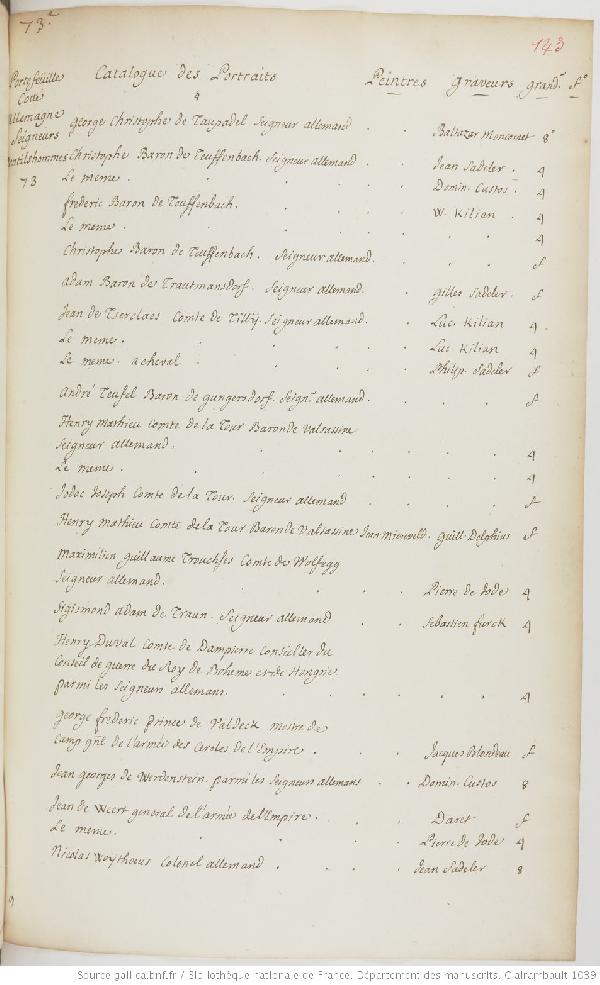 73.e
143
Portefeuille
Cotté
allemagne
Seigneurs
Gentilshommes
73
Catalogue des Portraits Peintres graveurs grand.r f.o
George Christophe de Taupadel Seigneur allemand . . Baltazar Moncornet 8°
Christophe Baron de Teuffenbach. Seigneur allemand . . Jean Sadeler . 4
Le meme . . . . . . Domin. Custos . 4
frederic Baron de Teuffenbach. . . . W. Kilian . 4
Le meme . . . . . . . 4
Christophe Baron de Teuffenbach. Seigneur allemand. . . . f
Adam Baron de Trautmansdorf. Seigneur allemand. . gilles Sadeler . f
Jean de Tserclaes Comte de Tilly. Seigneur allemand. . Luc. Kilian 4 .
Le meme . . . . . Luc Kilian 4
Le meme a cheval . . . . Philip. Sadeler f
André Teufel Baron de gungersdorf. Seign.r allemand. . . . f
Henry mathieu comte de la Tour Baron de Valsassine
Seigneur allemand. . . . . . . 4
Le meme . . . . . . . 4
Jodoc Joseph Comte de la Tour. Seigneur allemand . . . . f
Henry mathieu Comte de la Tour Baron de Valsassine Jean mireveld. guill. Delphius f
Maximilien guillaume Trouchses Comte de Wolfegg
Seigneur allemand. . . . Pierre de Jode 4
Sigismond adam de Traun. Seigneur allemand . . Sebastien furck 4
Henry Duval Comte de Dampierre Conseiller du
Conseil de guerre du Roy de Boheme et de Hongrie
parmi les Seigneurs allemans. . . . . . 4
George frederic prince de Valdeck mestre de
Camp gñl de l'armée des Cercles de l'Empire . . . Jacques Blondeau f
Jean georges de Werdenstein. parmi les Seigneurs allemans . . Domin. Custos 8
Jean de Weert general de l'armée de l'Empire . . . Daret f
Le meme. . . . . Pierre de Jode 4
Nicolas Woythoeus Colonel allemand . . . Jean Sadeler 8
Source gallica.bnf.fr / Bibliothèque nationale de France. Département des manuscrits. Clairambault 1039